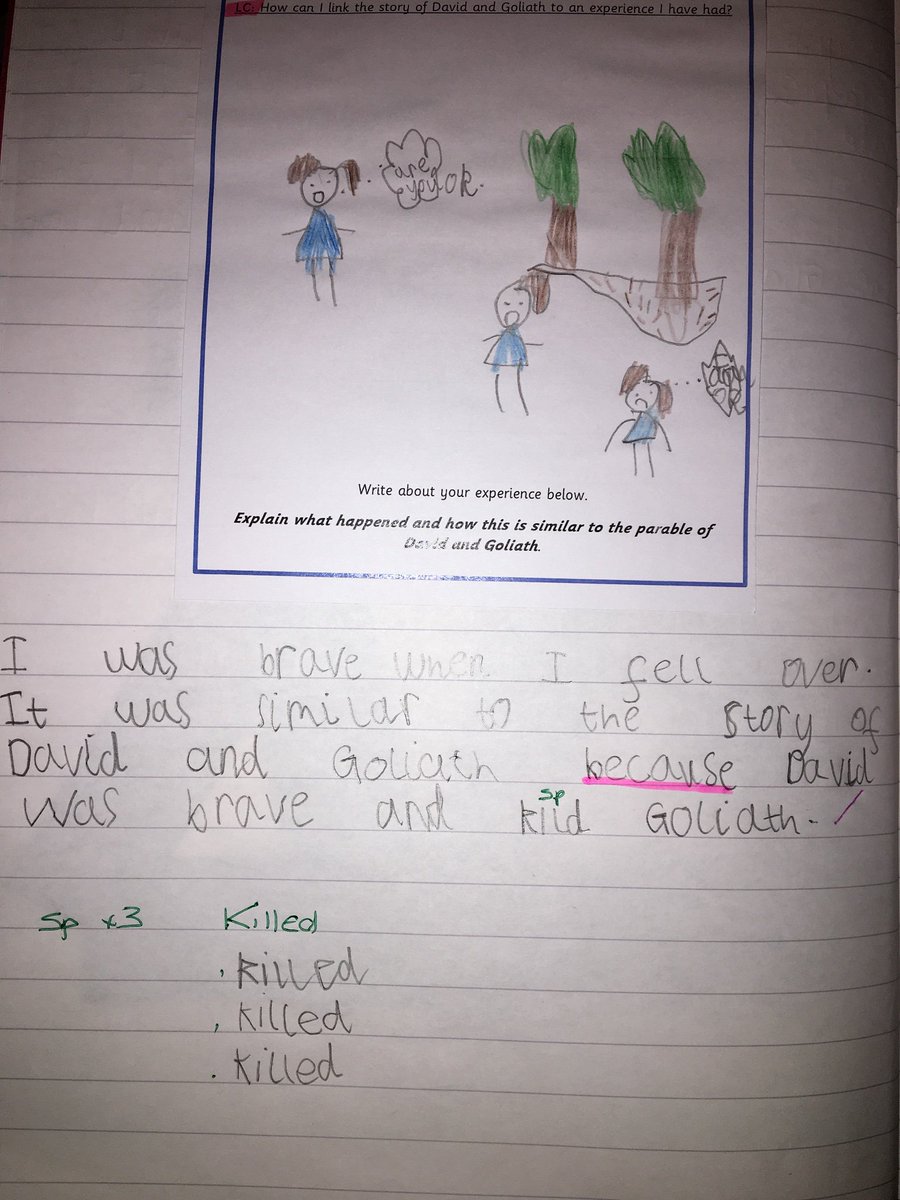 LC: How can I link the story of David and Goliath to an experience I have had?
are
you OK.
OK
Write about your experience below.
Explain what happened and how this is similar to the parable of
David and Goliath.
I was brave when I fell over.
It was similar to the story of
David and Goliath because David
was brave and kild Goliath.
sp
Sp x3 Killed
Killed
Killed
Killed